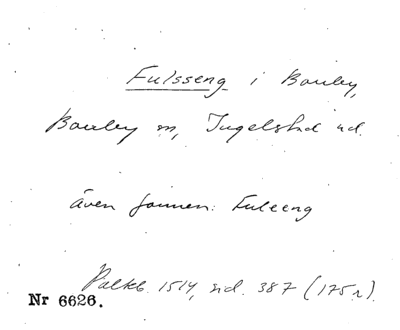 Fulsseng i Bouley,
Bouley sn, Ingelstad hd.
även formen: Fuleeng
Palteb. 1514, sid. 387 (175 r).
Nr 6626.